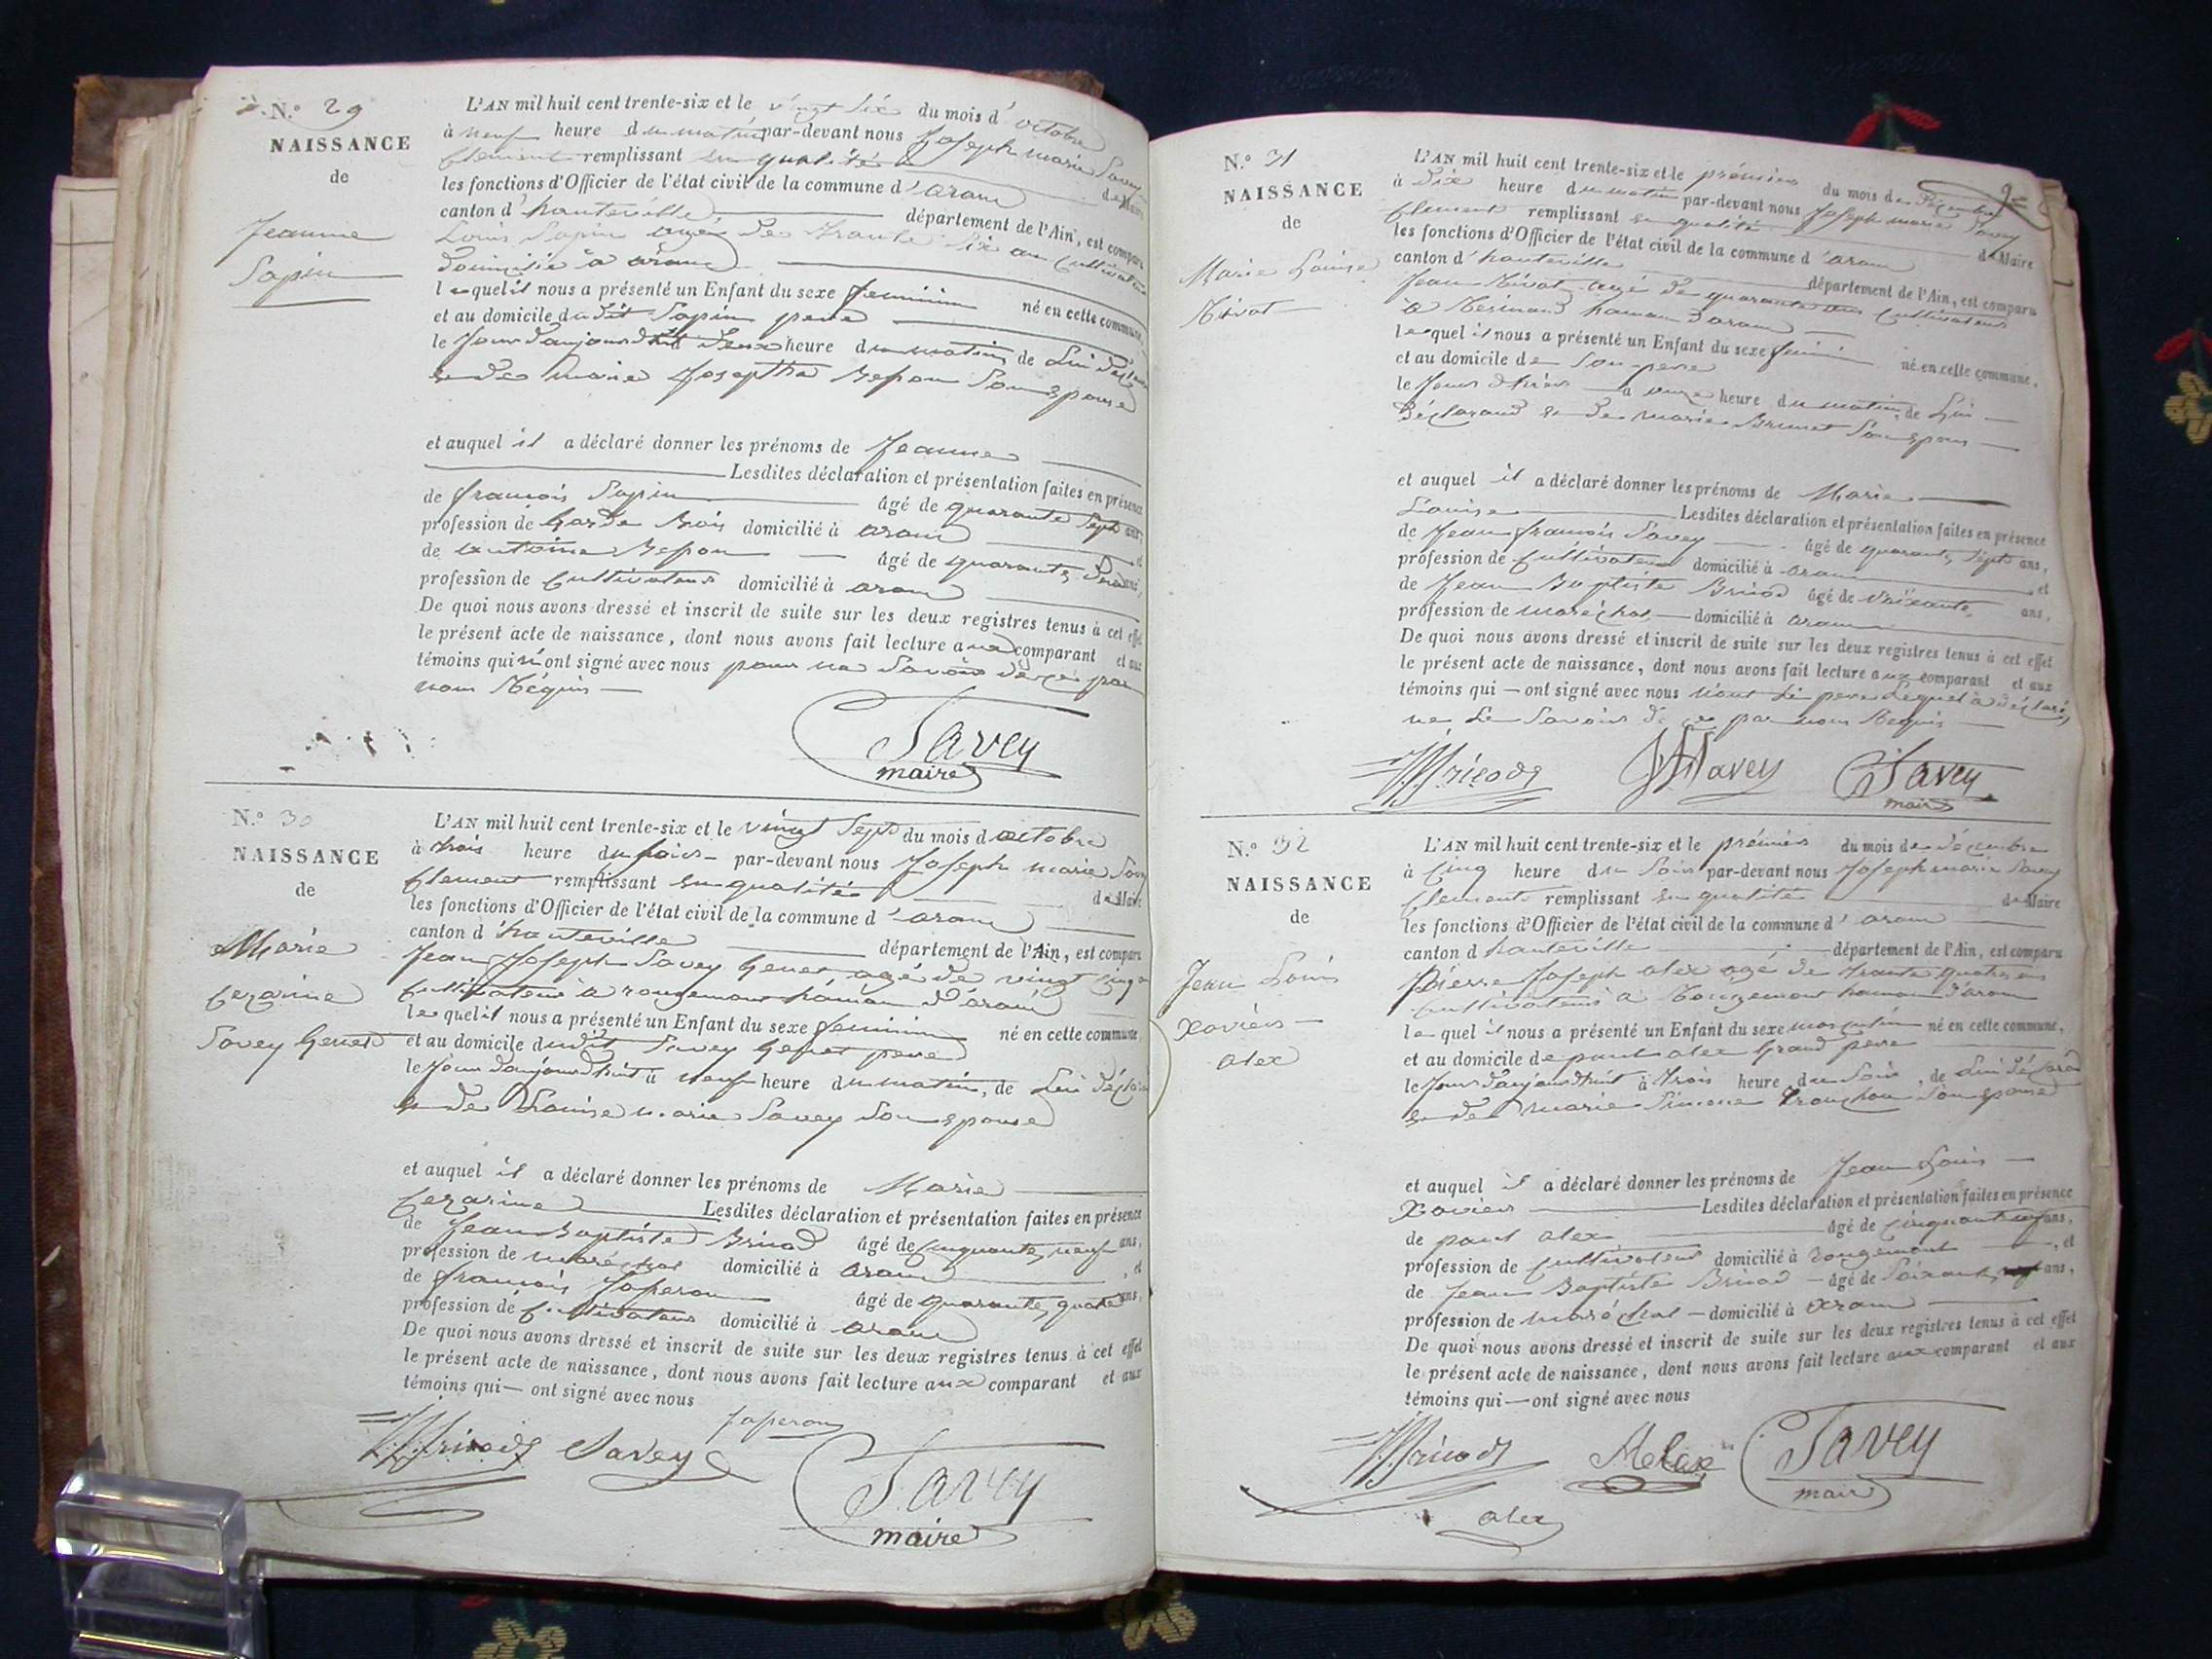 N.º 29
NAISSANCE
de
Jeanne
Sapin
L'AN mil huit cent trente-six et le vingt six du mois d'octobre
à neuf heure du matin par-devant nous Joseph marie Savey
Clement remplissant en qualité de Maire
les fonctions d'Officier de l'état civil de la commune d'aranc
canton d'hauteville département de l'Ain, est comparu
Louis Sapin agé de trante six ans Cultivateur
domicilié à aranc
lequel il nous a présenté un Enfant du sexe feminin né en cette commune,
et au domicile dudit Sapin pere
le Jour daujourdhui à deux heure du matin, de Lui
& de marie Josephte Bepon Son Epouse
et auquel il a déclaré donner les prénoms de Jeanne
Lesdites déclaration et présentation faites en présence
de francois Sapin âgé de quarante Sept ans,
profession de Garde Bois domicilié à aranc et
de antoine Bepon âgé de quarante ans,
profession de Cultivateur domicilié à aranc
De quoi nous avons dressé et inscrit de suite sur les deux registres tenus à cet effet
le présent acte de naissance, dont nous avons fait lecture aux comparant et aux
témoins qui n'ont signé avec nous pour ne Savoir de ce par
nous Réquis
Savey
maire
N.º 30
NAISSANCE
de
Marie
Cezarine
Savey Genet
L'AN mil huit cent trente-six et le vingt Sept du mois d'octobre
à trois heure du Soir par-devant nous Joseph marie Savey
Clement remplissant en qualité de Maire
les fonctions d'Officier de l'état civil de la commune d'aranc
canton d'hauteville département de l'Ain, est comparu
Jean Joseph Savey Genet agé de vingt Cinq
Cultivateur à rougemont hamau d'aranc
lequel il nous a présenté un Enfant du sexe feminin né en cette commune
et au domicile dudit Savey Genet pere
le Jour daujourdhuit à neuf heure du matin, de Lui
& de Louise marie Savey Son Epouse
et auquel il a déclaré donner les prénoms de Marie
Cezarine Lesdites déclaration et présentation faites en présence
de Jean Baptiste Brucod âgé de Cinquante neuf ans,
profession de maréchal domicilié à aranc, et
de francois Japeron âgé de quarante quatre ans,
profession de Cultivateur domicilié à aranc
De quoi nous avons dressé et inscrit de suite sur les deux registres tenus à cet effet
le présent acte de naissance, dont nous avons fait lecture aux comparant et aux
témoins qui — ont signé avec nous
Japeron
Savey
Savey
maire
N.º 31
NAISSANCE
de
Marie Louise
L'AN mil huit cent trente-six et le prémier du mois de Décembre
à dix heure du matin par-devant nous Joseph marie Savey
Clement remplissant en qualité de Maire
les fonctions d'Officier de l'état civil de la commune d'aranc
canton d'hauteville département de l'Ain, est comparu
Jean agé de quarante ans Cultivateur
à hamau d'aranc
lequel il nous a présenté un Enfant du sexe feminin né en cette commune,
et au domicile de Son pere
le Jour d'hier à onze heure du matin, de Lui
déclarand & de marie Brunet Son Epouse
et auquel il a déclaré donner les prénoms de Marie
Louise Lesdites déclaration et présentation faites en présence
de Jean francois Savey âgé de quarante Sept ans,
profession de Cultivateur domicilié à aranc et
de Jean Baptiste Brucod âgé de Soixante ans,
profession de maréchal domicilié à aranc
De quoi nous avons dressé et inscrit de suite sur les deux registres tenus à cet effet
le présent acte de naissance, dont nous avons fait lecture aux comparant et aux
témoins qui — ont signé avec nous Non Le pere Lequel à déclaré
ne Le Savoir de ce par nous Requis
Savey
Savey
maire
N.º 32
NAISSANCE
de
Jean Louis
Xaviers
alex
L'AN mil huit cent trente-six et le prémier du mois de décembre
à Cinq heure du Soir par-devant nous Joseph marie Savey
Clement remplissant en qualité de Maire
les fonctions d'Officier de l'état civil de la commune d'aranc
canton d'hauteville département de l'Ain, est comparu
Pierre Joseph alex agé de trante quatre ans
Cultivateur à Rougemont hamau d'aranc
lequel il nous a présenté un Enfant du sexe masculin né en cette commune,
et au domicile de paul alex Grand pere
le Jour daujourdhuit à trois heure du Soir, de Lui déclarand
& de marie Simone Son Epouse
et auquel il a déclaré donner les prénoms de Jean Louis
Xaviers Lesdites déclaration et présentation faites en présence
de paul alex âgé de ans,
profession de Cultivateur domicilié à rougemont, et
de Jean Baptiste Brucod âgé de Soixante ans,
profession de maréchal domicilié à aranc
De quoi nous avons dressé et inscrit de suite sur les deux registres tenus à cet effet
le présent acte de naissance, dont nous avons fait lecture aux comparant et aux
témoins qui — ont signé avec nous
Savey
maire
alex